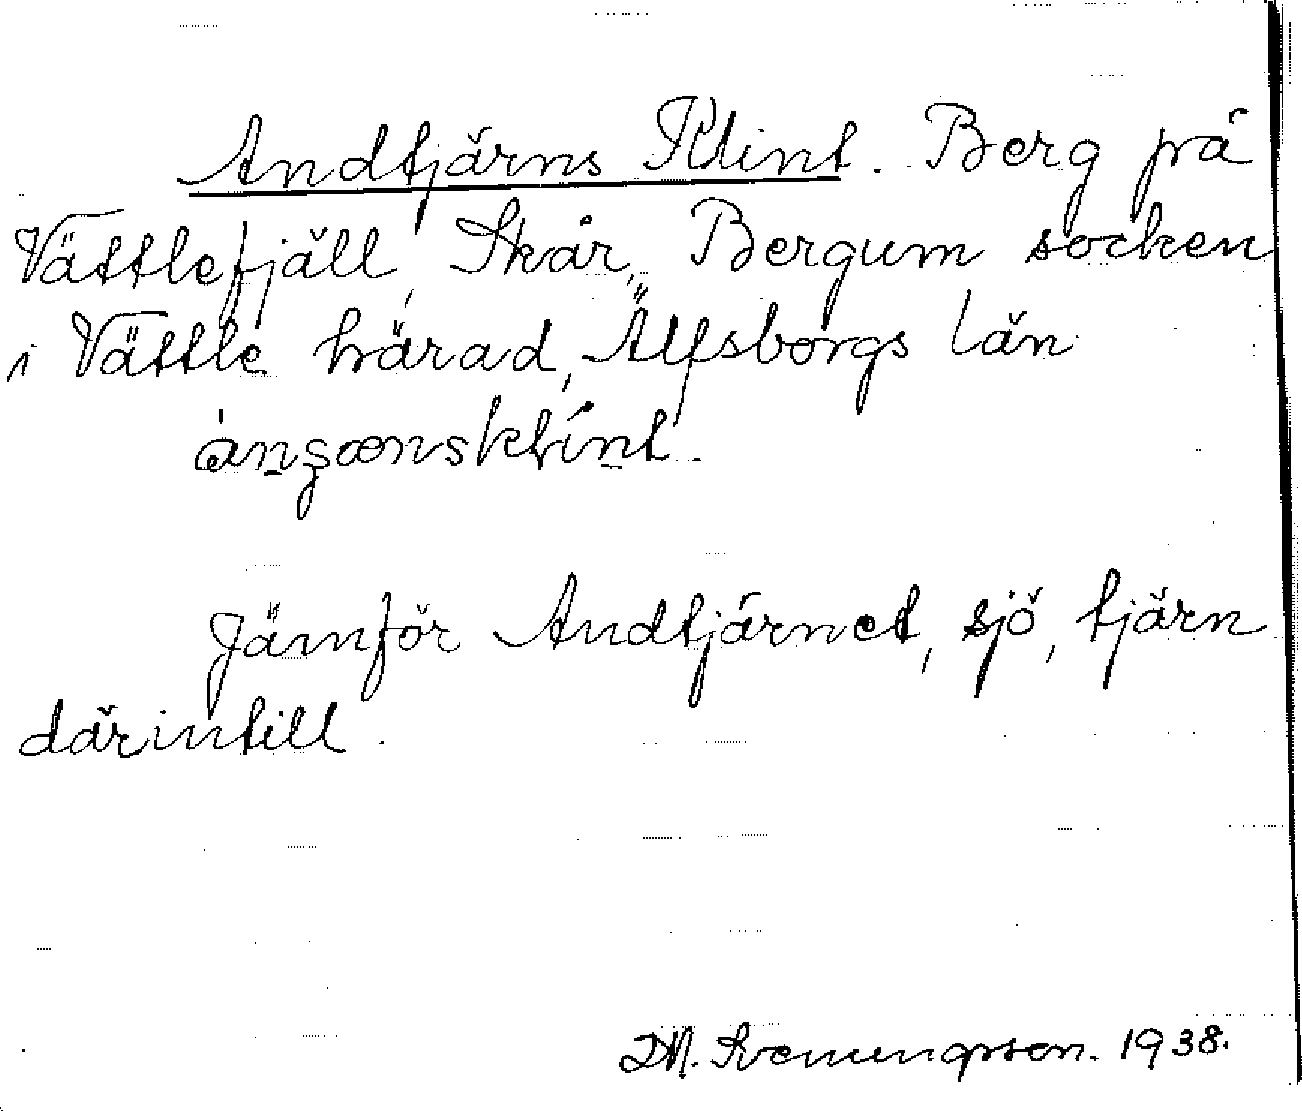 Andtjärns Klint. Berg på
Vättlefjäll, Skår, Bergum socken
i Vättle härad, Älfsborgs län
Jämför Andtjärnet, sjö, tjärn
därintill.
1938.